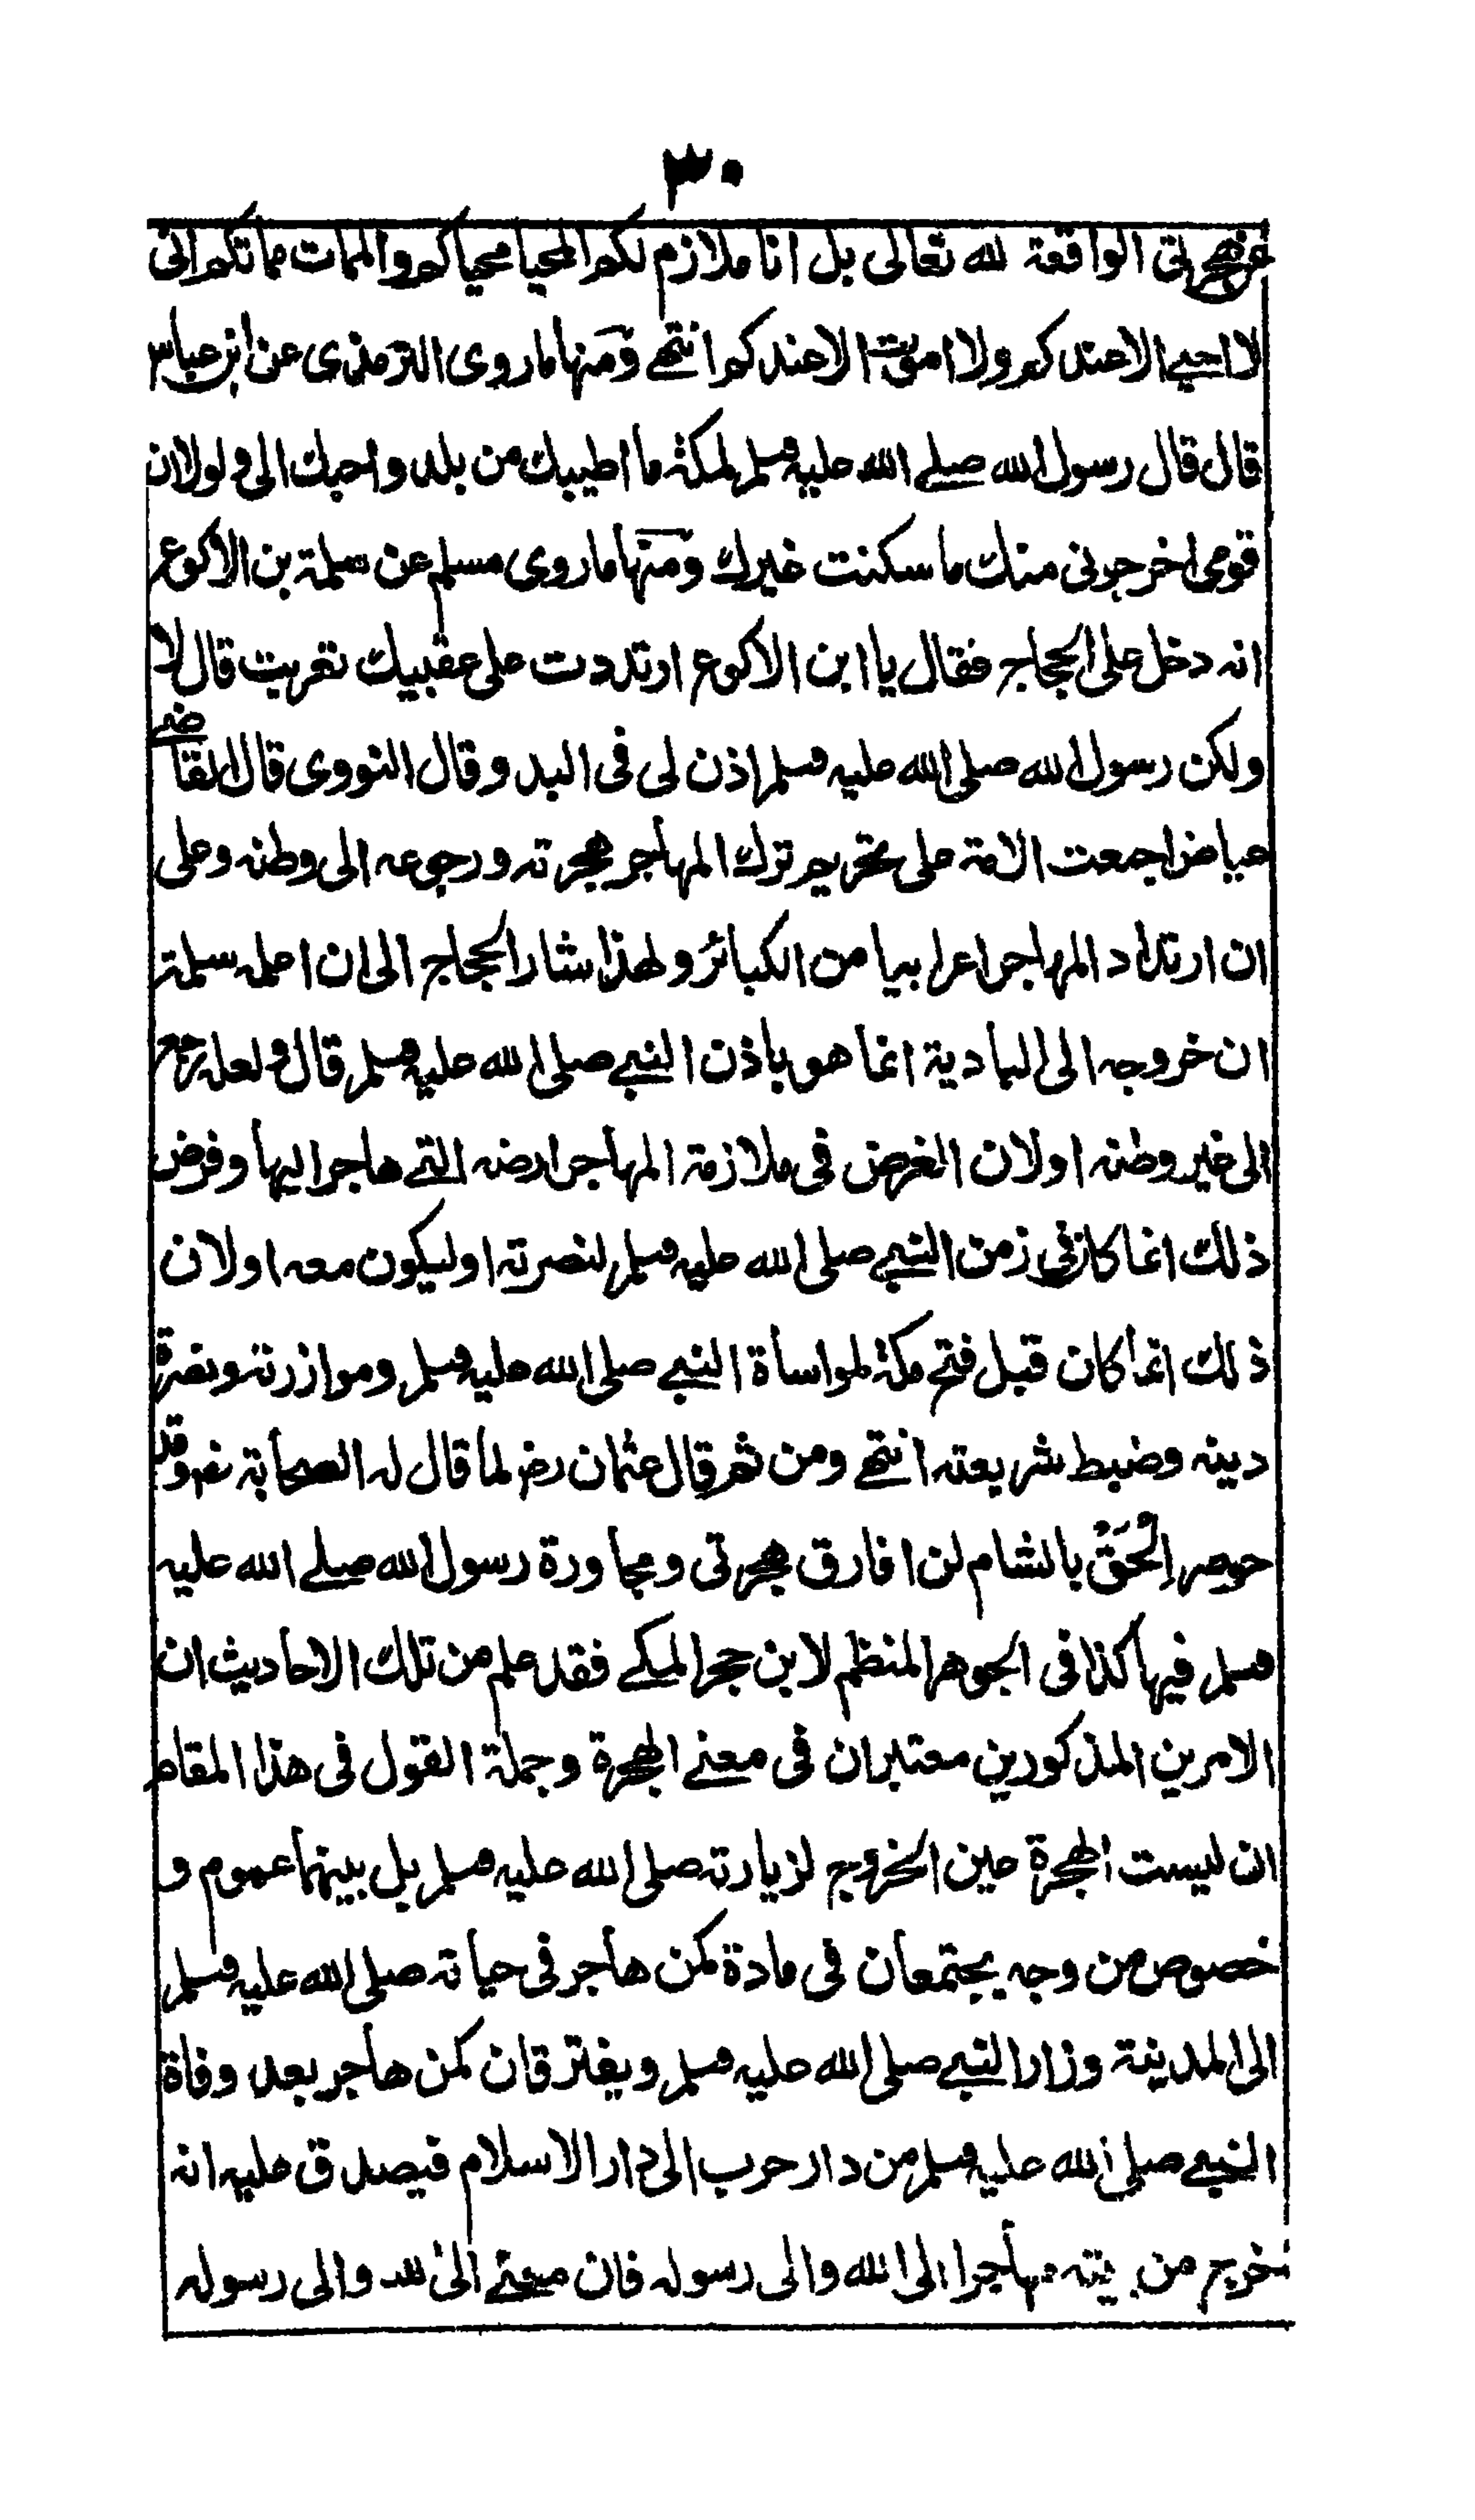 ٣٠
عن هجرتى الواقعة لله تعالى بل انا ملازم لكم المحيا محياكم والممات مماتكم اى
لا احيى الا عندكم ولا اموت الا عندكم انتهى ومنها ما روى الترمذى عن ابن عباس
قال قال رسول الله صلى الله عليه وسلم لمكة ما اطيبك من بلد واحبك الى ولولا ان
قومى اخرجونى منك ما سكنت غيرك ومنها ما روى مسلم عن سلمة بن الاكوع
انه دخل على الحجاج فقال يا ابن الاكوع ارتددت على عقبيك تعربت قال لا
ولكن رسول الله صلى الله عليه وسلم اذن لى فى البدو قال النووى قال القاضى
عياض اجمعت الامة على تحريم ترك المهاجر هجرته ورجوعه الى وطنه وعلى
ان ارتداد المهاجر اعرابيا من الكبائر ولهذا شار الحجاج الى ان اعمله سلمة
ان خروجه الى البادية انما هو باذن النبى صلى الله عليه وسلم قال ولعله رجع
الى غير وطنه او لان الغرض فى ملازمة المهاجر ارضه التى هاجر اليها وفرض
ذلك انما كان فى زمن النبى صلى الله عليه وسلم لنصرته او ليكون معه او لان
ذلك انما كان قبل فتح مكة لمواساة النبى صلى الله عليه وسلم وموازرته ونصرة
دينه وضبط شريعته انتهى ومن ثم قال عثمان رض لما قال له الصحابة رض وقد
حوصر الحق بالشام لن افارق هجرتى ومجاورة رسول الله صلى الله عليه
وسلم فيها كذا فى الجوهر المنظم لابن حجر المكى فقد علم من تلك الاحاديث ان
الامرين المذكورين معتبران فى معنى الهجرة وجملة القول فى هذا المقام
ان ليست الهجرة عين الخروج لزيارته صلى الله عليه وسلم بل بينهما عموم و
خصوص من وجه يجتمعان فى مادة كمن هاجر فى حياته صلى الله عليه وسلم
الى المدينة وزار النبى صلى الله عليه وسلم ويفترقان كمن هاجر بعد وفاة
النبى صلى الله عليه وسلم من دار حرب الى دار الاسلام فيصدق عليه انه
خرج من بيته مهاجرا الى الله والى رسوله فان معنى الى الله والى رسوله